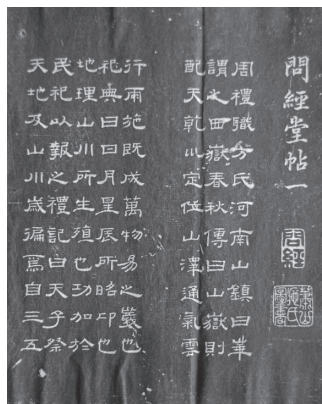 問經堂帖一
周禮職方氏河南山鎮曰華
謂之西嶽春秋傳曰山嶽則
配天乾以定位山澤通氣雲
行雨施既成萬物易之義也
祀典曰日月星辰所昭卬也
地理山川所生殖也功加於
民祀以報之禮記曰天子祭
天地及山川歲徧焉自三五